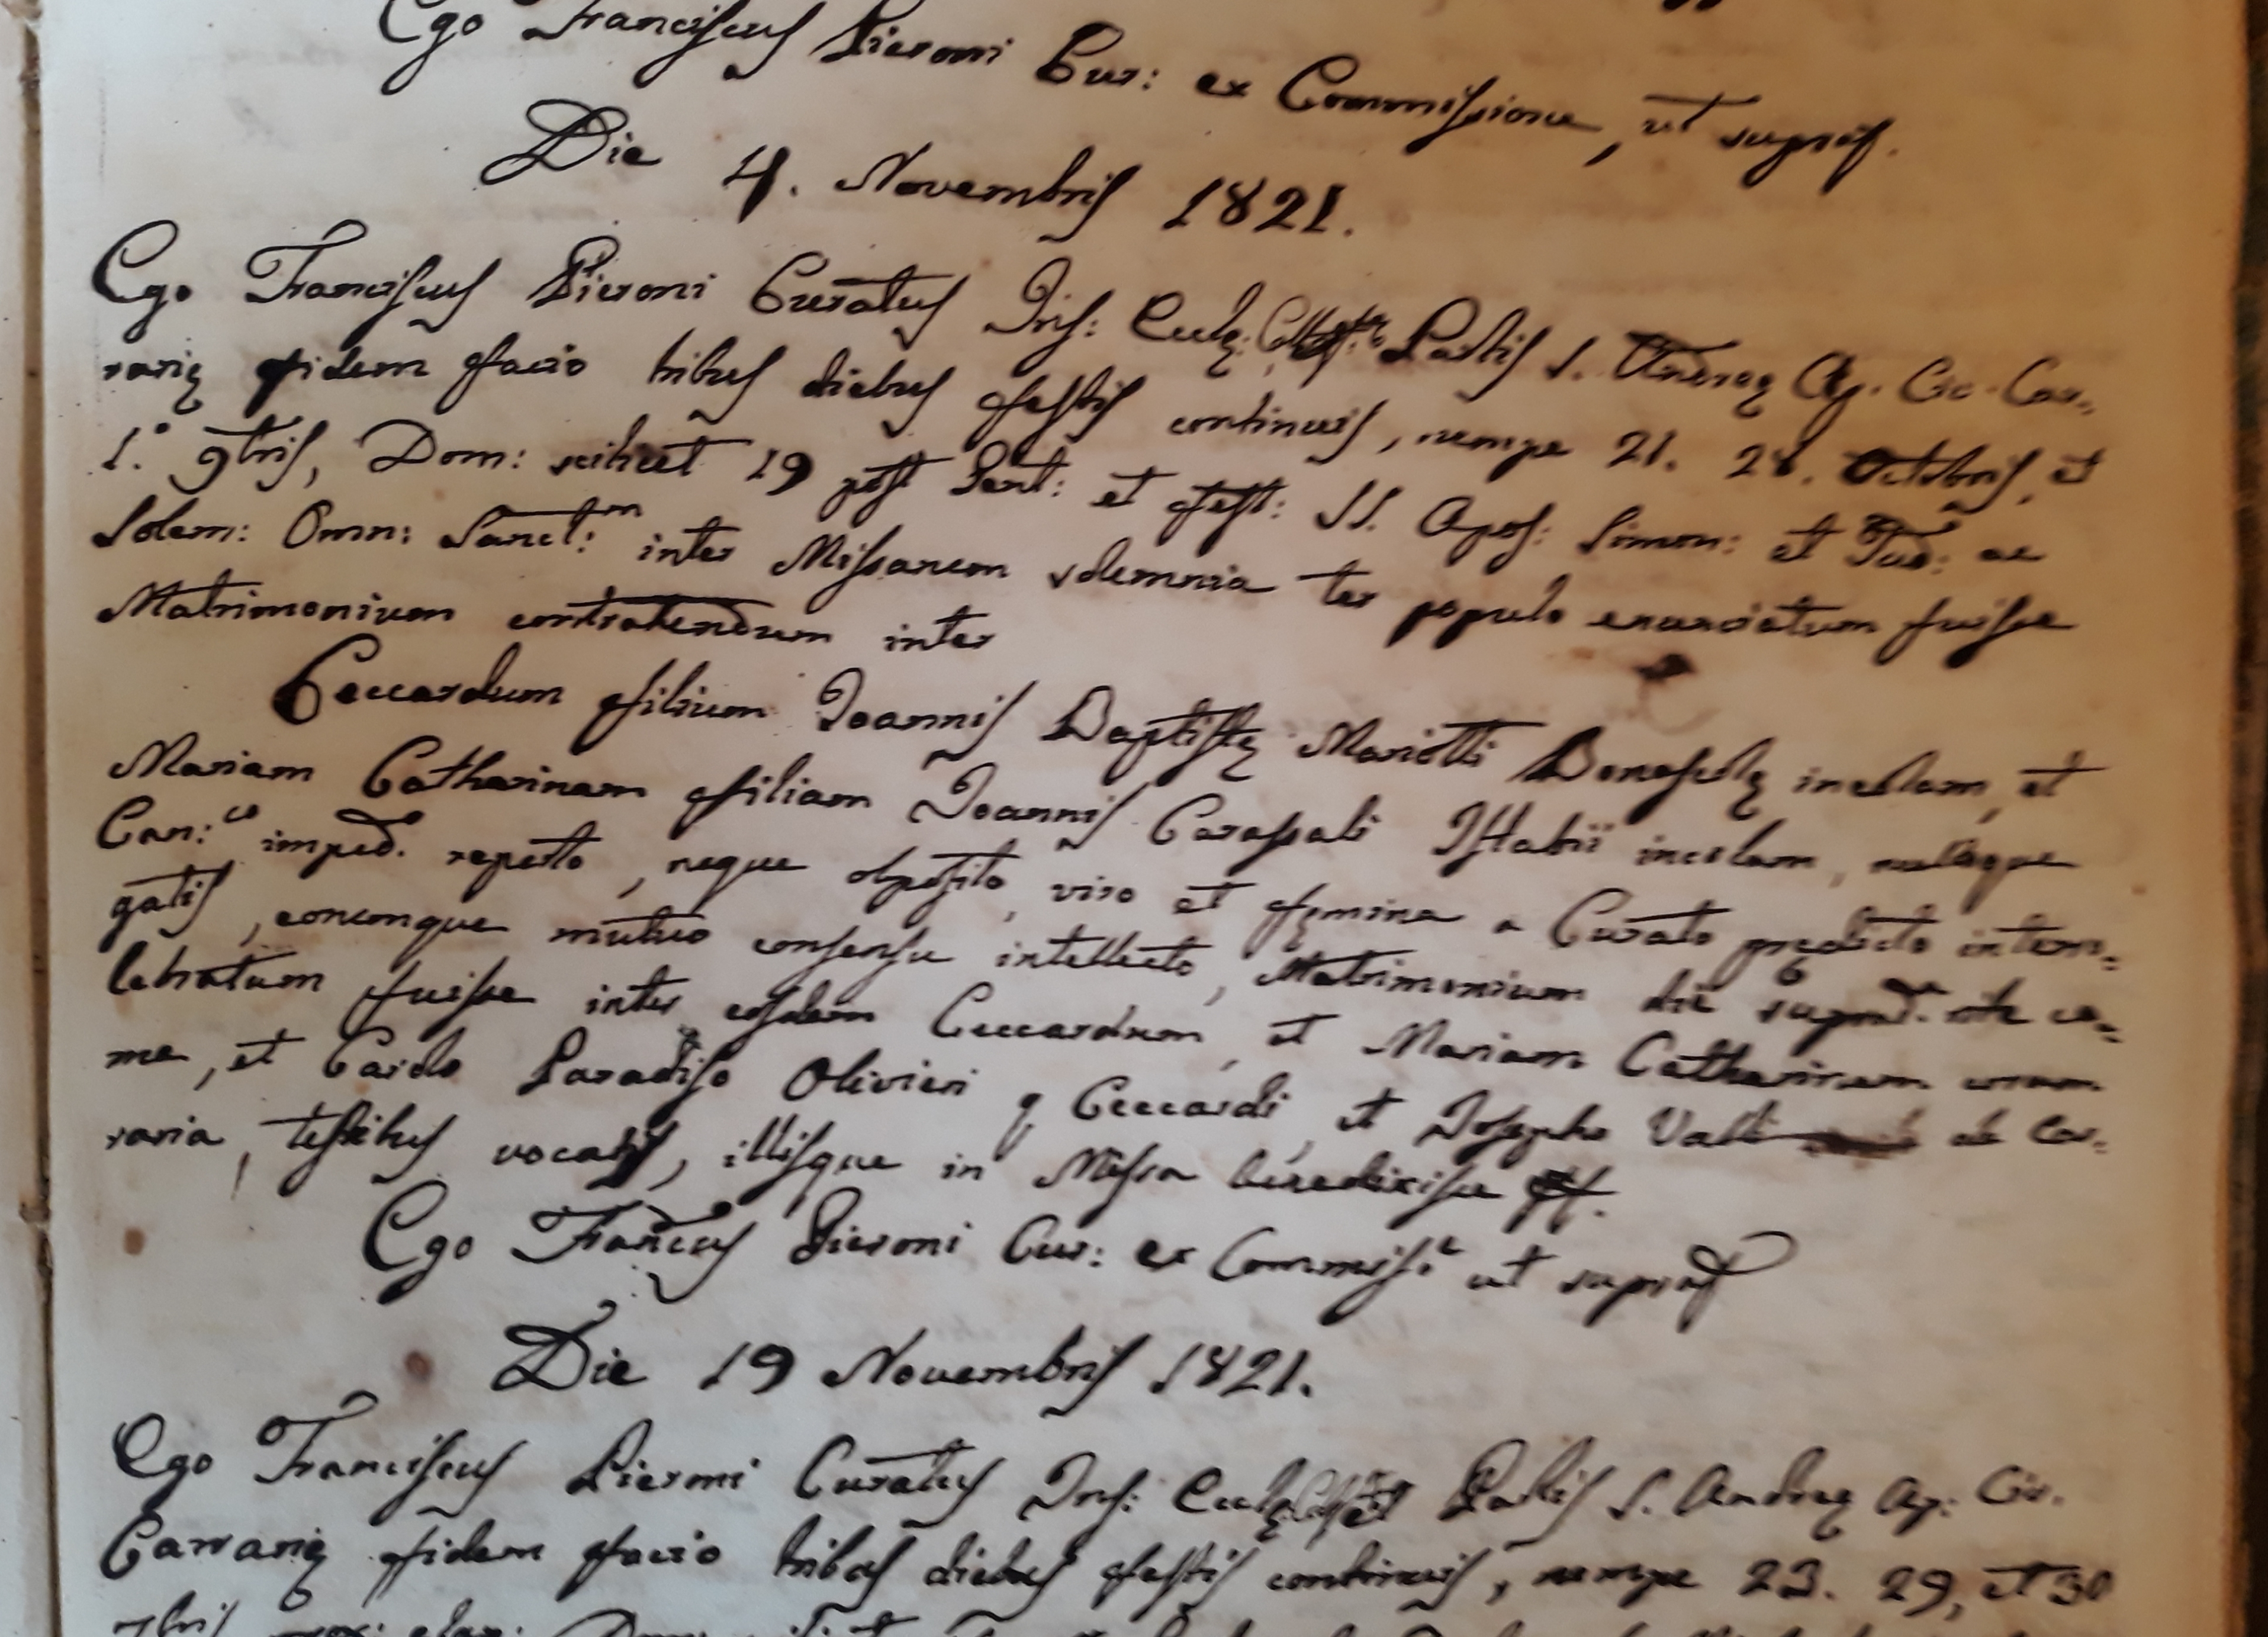 Ego Franciscus Pieroni Cur: ex Commissione, ut supra.
Die 4. Novembris 1821.
Ego Franciscus Pieroni Curatus Ins: Eccle: Pablis S. Andreę Ap. Civ. Car-
rarię fidem facio tribus diebus festis continuis, nempe 21. 28. Octobris, et
1.° 9bris, Dom: scilicet 19 post Pent: et fest: SS. Apos: Simon: et Jud: ac
Solem: Omn: Sanct:m inter Missarum solemnia ter populo enunciatum fuisse
Matrimonium contrahendum inter
Ceccardum filium Joannis Baptistę Mariotti Bonascolę incolam, et
Mariam Catharinam filiam Joannis Istabii incolam, nulloque
Can:co imped. reperto, neque opposito, viro et fęmina a Curato prędicto interro-
gatis, eorumque mutuo consensu intellecto, Matrimonium die suprad. rite ce-
lebratum fuisse inter eosdem Ceccardum, et Mariam Catharinam coram
me, et Carolo Paradiso Olivieri q Ceccardi, et Josepho Vatti de Car-
raria, testibus vocatis, illisque in Missa benedixisse
Ego FranCus Pieroni Cur: ex Commiss.e ut supra
Die 19 Novembris 1821.
Ego Franciscus Pieroni Curatus Ins: Eccle Pablis S. Andreę Ap: Civ.
Carrarię fidem facio tribus diebus festis continuis, nempe 23. 29, et 30
7bris